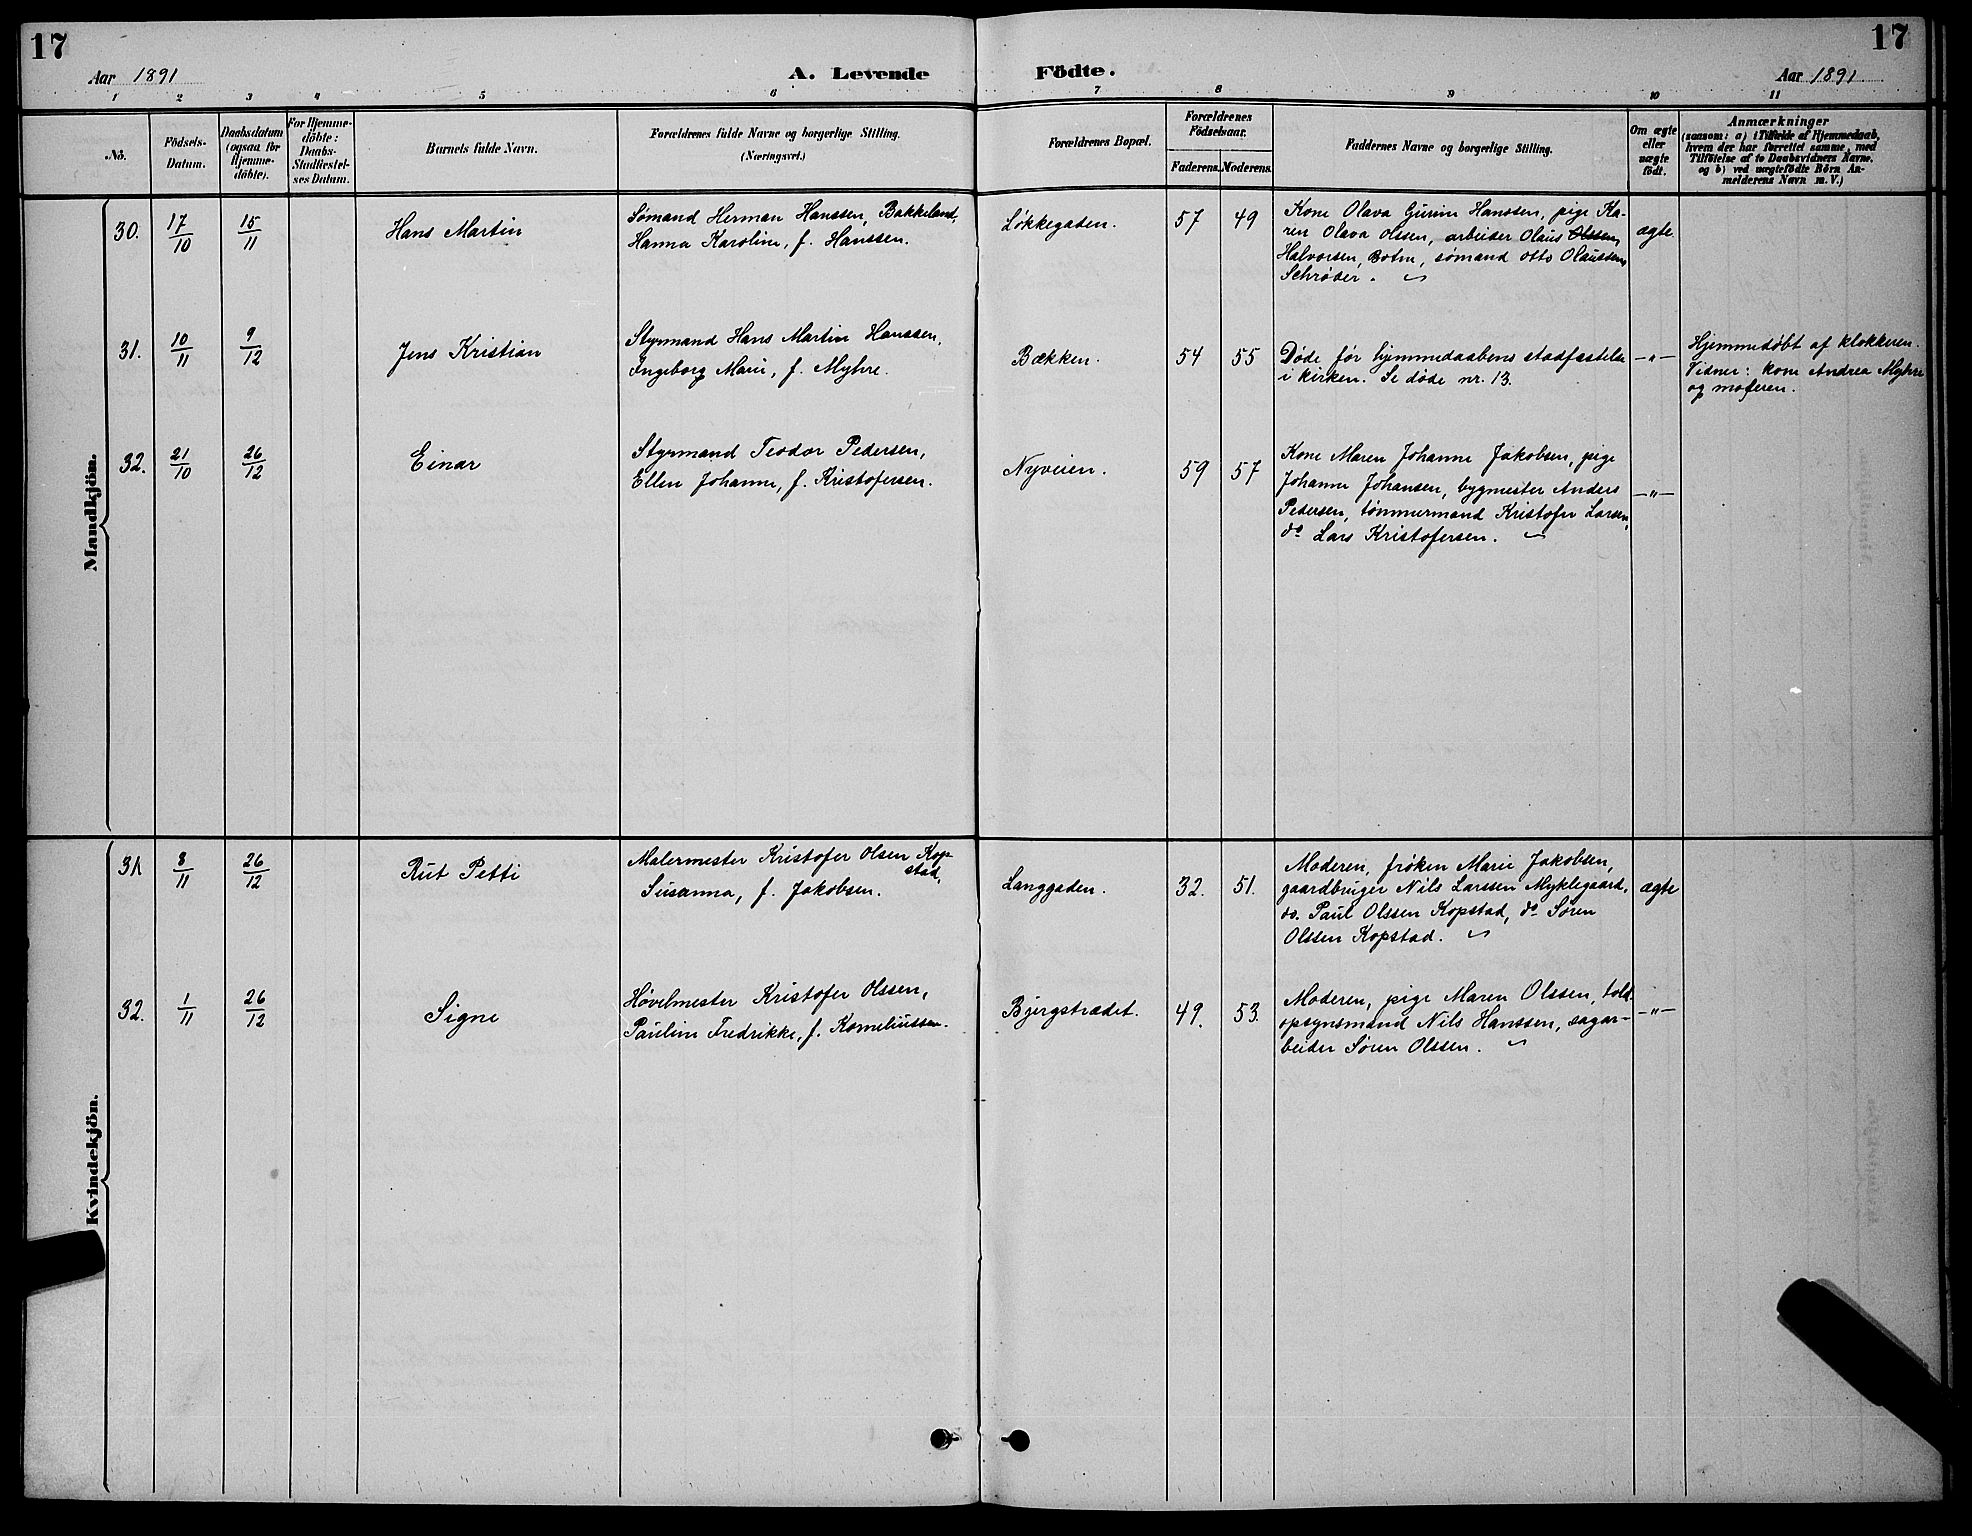 17
17
Aar 1891
A. Levende
Födte.
Aar 1891
1 2 3 4 5 6 7 8 9 10 11
No.
Födsels-
Datum.
Daabsdatum
(ogsaa for
Hjemme-
döbte).
For Hjemme-
döbte:
Daabs-
Stadfæstel-
ses Datum.
Barnets fulde Navn.
Forældrenes fulde Navne og borgerlige Stilling.
(Næringsvei.)
Forældrenes Bopæl.
Forældrenes
Födselsaar.
Faderens. Moderens.
Faddernes Navne og borgerlige Stilling.
Om ægte
eller
uægte
födt.
Anmærkninger
(saasom: a) i Tilfælde af Hjemmedaab,
hvem der har forrettet samme, med
Tilföielse af to Daabsvidners Navne,
og b) ved uægtefödte Börn An-
melderens Navn m. V.)
Mandkjön.
30. 17/10 15/11 Hans Martin
Sømand Herman Hanssen, Bakkeland,
Hanna Karoline, f. Hanssen.
Løkkegaden. 57 49
Kone Olava Gurine Hanssen, pige Ka-
ren Olava Olssen, arbeider Olaus Olssen,
Halvorsen, Botne, sømand Otto Olaussen
Schrøder.
ægte.
31. 10/11 9/12 Jens Kristian
Styrmand Hans Martin Hanssen,
Ingeborg Marie, f. Myhre.
Bækken. 54 55
Døde før hjemmedaabens stadfæstelse
i kirken. Se døde nr. 13.
—"—
Hjemmedøbt af klokkeren.
Vidner: kone Andrea Myhre
og moderen.
32. 21/10 26/12 Einar
Styrmand Teodor Pedersen,
Ellen Johanne, f. Kristofersen.
Nyveien. 59 57
Kone Maren Johanne Jakobsen, pige
Johanne Johansen, bygmester Anders
Pedersen, tømmermand Kristofer Larsen,
do Lars Kristofersen.
—"—
Kvindekjön.
31 8/11 26/12 Rut Petti
Malermester Kristofer Olsen Kop-
stad,
Susanna, f. Jakobsen.
Langgaden. 32. 51.
Moderen, frøken Marie Jakobsen,
gaardbruger Nils Larssen Myklegaard,
do. Paul Olssen Kopstad, do Søren
Olssen Kopstad.
ægte
32. 1/11 26/12 Signe
Høvelmester Kristofer Olssen,
Pauline Fredrikke, f. Korneliussen.
Bjergstrædet. 49. 53.
Moderen, pige Maren Olssen, told-
opsynsmand Nils Hanssen, sagar-
beider Søren Olssen.
—"—